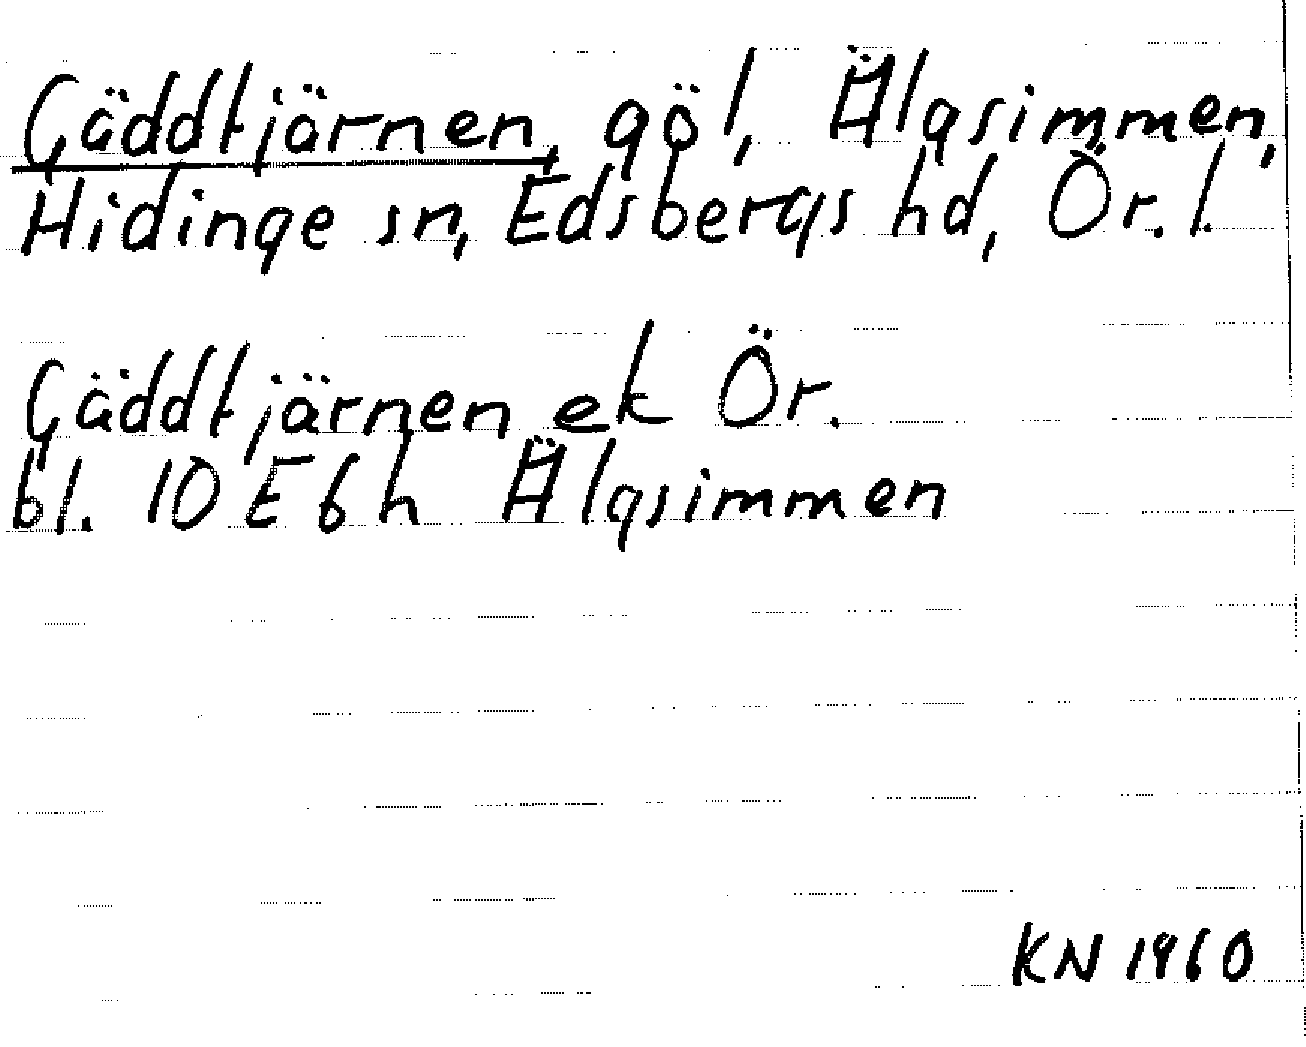 Gäddtjärnen, göl, Älgsimmen,
Hidinge sn, Edsbergs hd, Ör. l.
Gäddtjärnen ek Ör.
bl. 10 E 6 h Älgsimmen
KN 1960